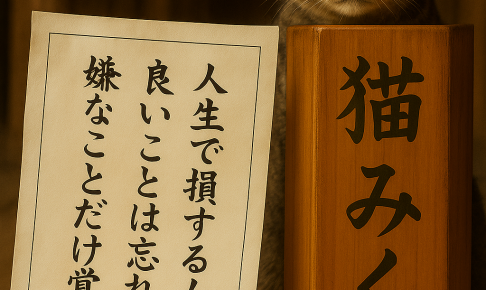 人生で損する
良いことは忘れ
嫌なことだけ覚
猫みく